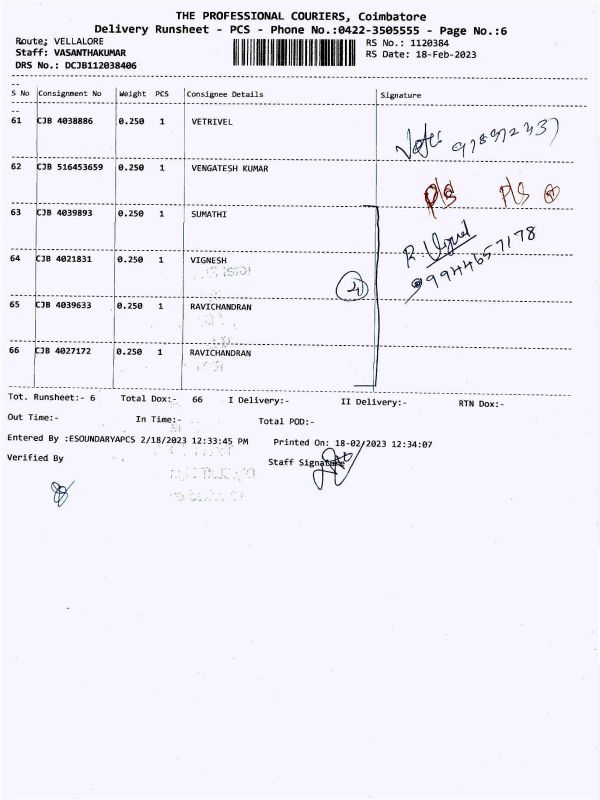 THE PROFESSIONAL COURIERS, Coimbatore
Delivery Runsheet - PCS - Phone No.:0422-3505555 - Page No.:6
Route; VELLALORE
RS No.: 1120384
Staff: VASANTHAKUMAR
RS Date: 18-Feb-2023
DRS No.: DCJB112038406
S No Consignment No Weight PCS Consignee Details Signature
61 CJB 4038886 0.250 1 VETRIVEL
62 CJB 516453659 0.250 1 VENGATESH KUMAR
P/S P/S
63 CJB 4039893 0.250 1 SUMATHI
R.
9944657178
64 CJB 4021831 0.250 1 VIGNESH
65 CJB 4039633 0.250 1 RAVICHANDRAN
66 CJB 4027172 0.250 1 RAVICHANDRAN
Tot. Runsheet:- 6 Total Dox:- 66 I Delivery:- II Delivery:- RTN Dox:-
Out Time:- In Time:- Total POD:-
Entered By :ESOUNDARYAPCS 2/18/2023 12:33:45 PM Printed On: 18-02/2023 12:34:07
Verified By Staff Signature